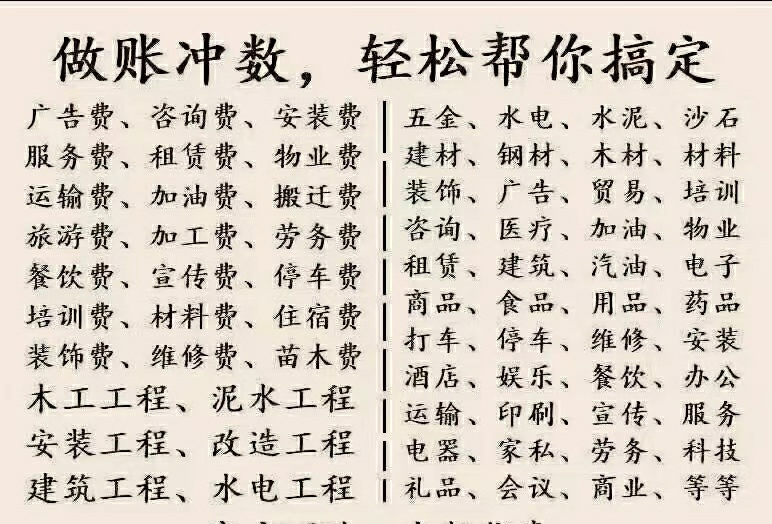 做账冲数，轻松帮你搞定
广告费、咨询费、安装费
服务费、租赁费、物业费
运输费、加油费、搬迁费
旅游费、加工费、劳务费
餐饮费、宣传费、停车费
培训费、材料费、住宿费
装饰费、维修费、苗木费
木工工程、泥水工程
安装工程、改造工程
建筑工程、水电工程
五金、水电、水泥、沙石
建材、钢材、木材、材料
装饰、广告、贸易、培训
咨询、医疗、加油、物业
租赁、建筑、汽油、电子
商品、食品、用品、药品
打车、停车、维修、安装
酒店、娱乐、餐饮、办公
运输、印刷、宣传、服务
电器、家私、劳务、科技
礼品、会议、商业、等等